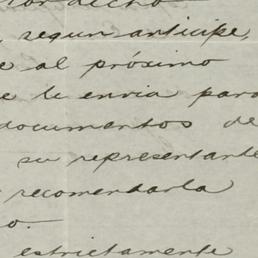 tor dicho
, segun anticipe,
e al próximo
e le envia para
documentos de
su representante
recomendarla
o.
estrictamente